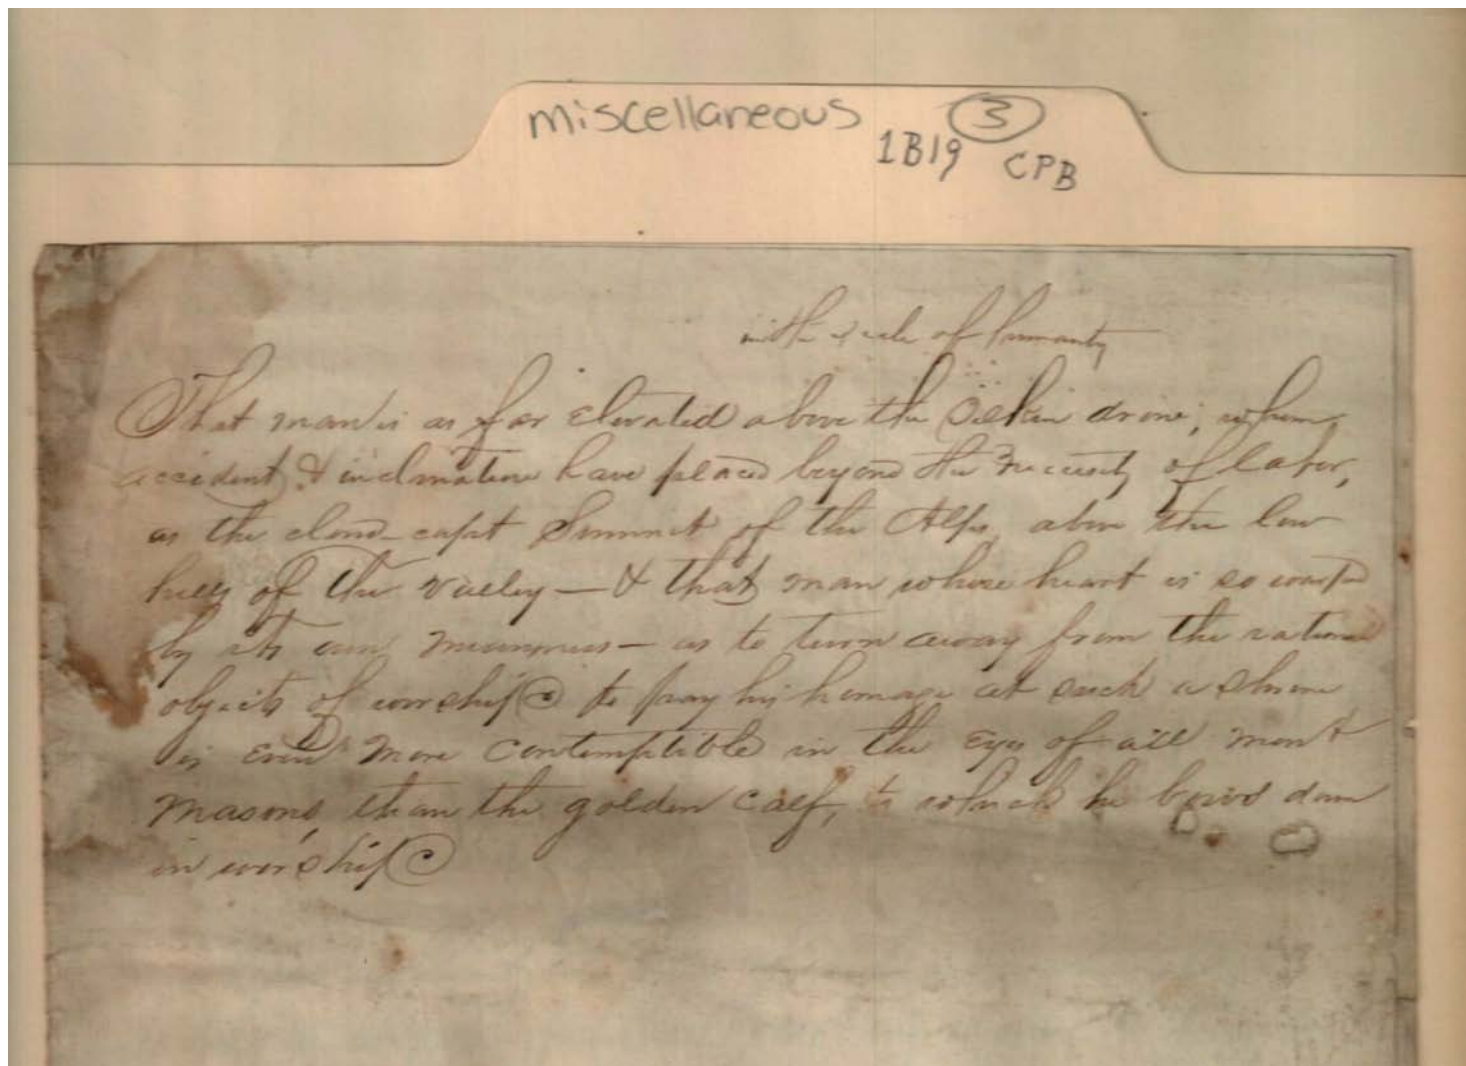 miscellaneous 3
1B19 CPB
in the scale of humanity
That man is as far elevated above the Silken drone, whom
accident & inclination have placed beyond the necessity of labor,
as the cloud-capt Summit of the Alps, above the low
hills of the valley — & that man whose heart is so warped
by its own meanness — as to turn away from the rational
objects of worship to pay his homage at such a shrine
is even more contemptible in the Eyes of all men &
masons, than the golden calf, to which he bows down
in worship